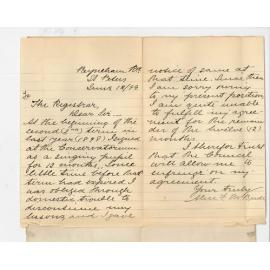 Payneham Rd
St Peters
June 18/99
To
The Registrar,
Dear Sir—
At the beginning of the
second (2nd) term in
last year (1898) I signed
at the Conservatorium
as a singing pupil
for 12 months. Some
little time before that
term had expired I
was obliged through
domestic trouble to
discontinue my
lessons and I gave
notice of same at
that time. Since then
I am sorry owing
to my present position
I am quite unable
to fulfil my agree
ment for the remain
der of the twelve (12)
months.
I therefor trust
that the Council
will allow me to
infringe on my
agreement.
Yours Truly